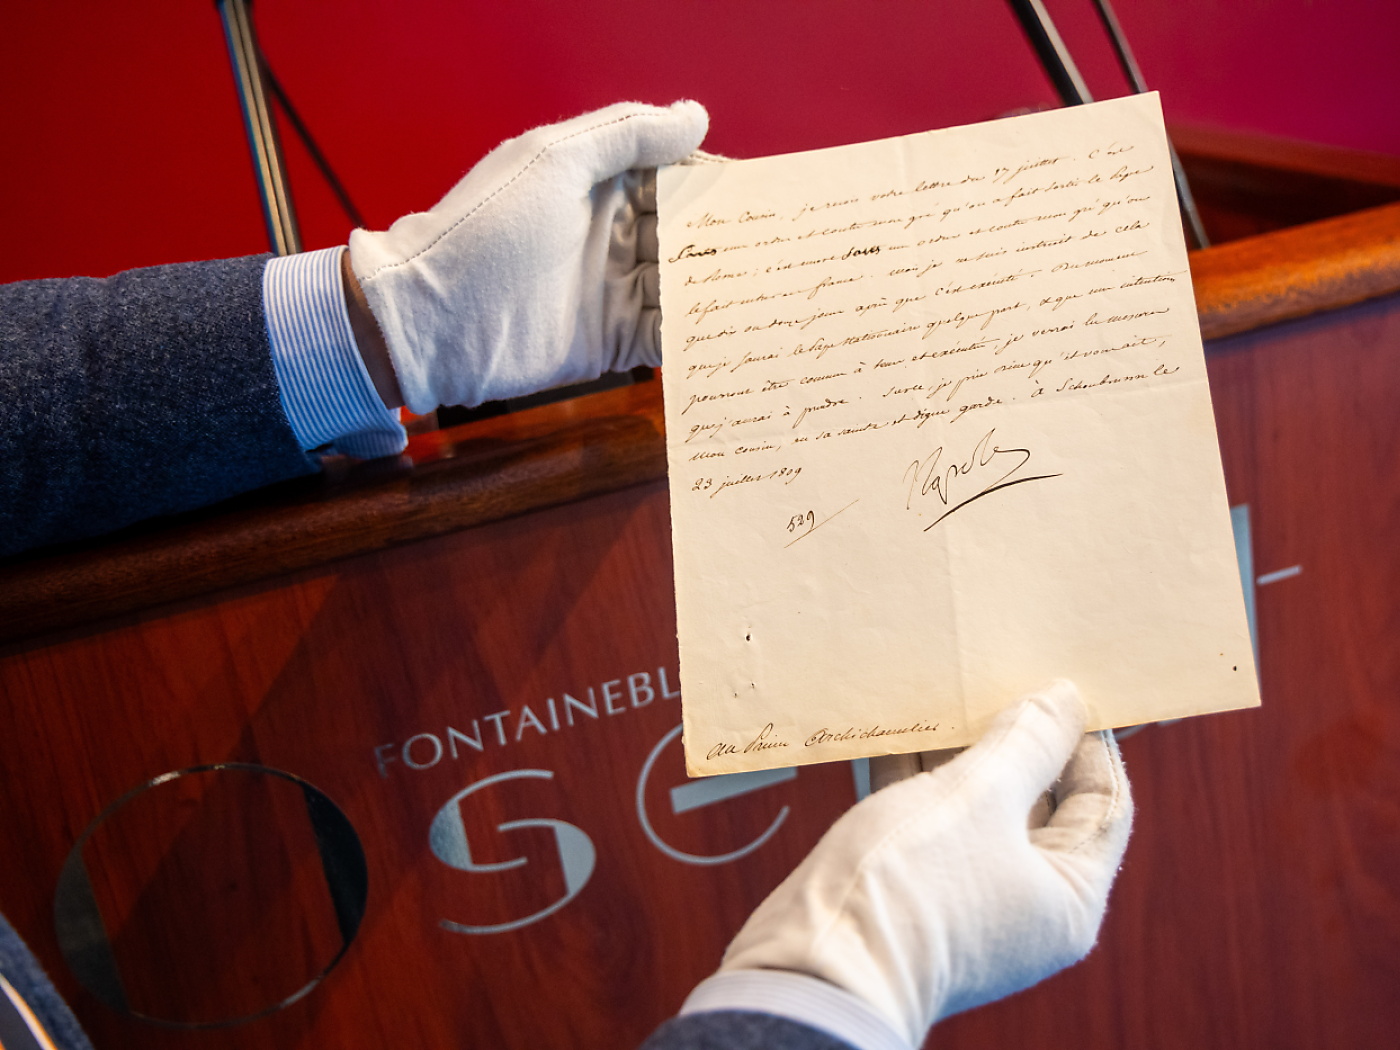 Mon Cousin, je reçois votre lettre du 17 juillet. C'est
sans mon ordre et contre mon gré qu'on a fait sortir le Pape
de Rome; c'est encore sans mon ordre et contre mon gré qu'on
le fait entrer en france. Mais je ne suis instruit de cela
que dix ou douze jours après que c'est exécuté. Du moment
que je saurai le Pape stationnaire quelque part, et que mes intentions
pourront être connues à tems et exécutées, je verrai les mesures
que j'aurai à prendre. Sur ce je prie Dieu qu'il vous ait,
Mon cousin, en sa sainte et digne garde. à Schonbrunn le
23 juillet 1809
Napole
529
au Prince Archichancelier.
FONTAINEBL
OSE